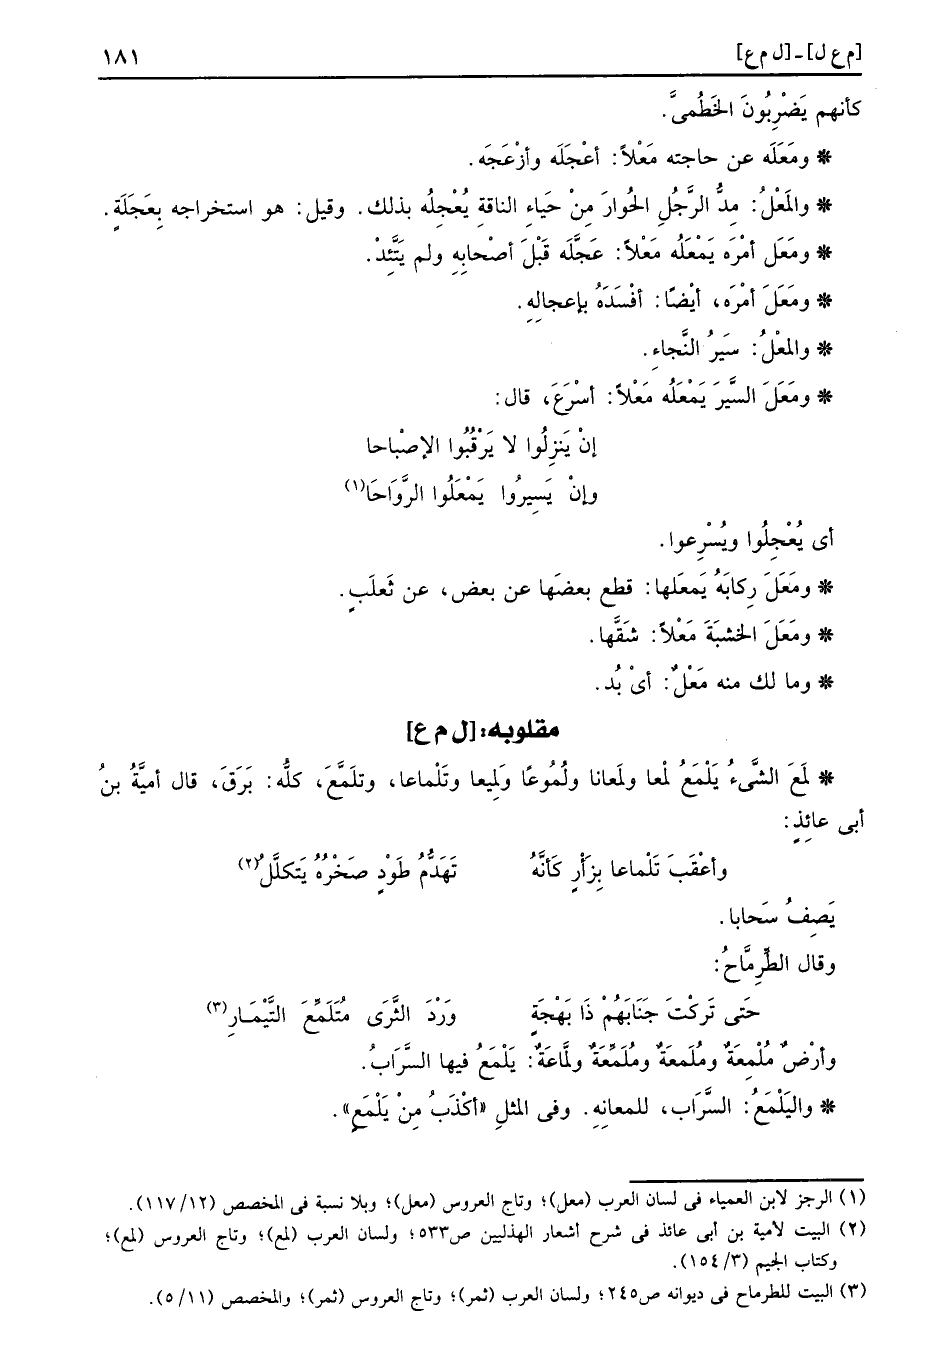 [م ع ل] ـ [ل م ع] ١٨١
كأنهم يَضْرِبُونَ الخَطْمىَّ.
* ومَعَلَه عن حاجته مَعْلاً: أعْجَلَه وأزْعَجَه.
* والمَعْلُ: مِدُّ الرَّجُلِ الحُوارَ مِنْ حَياءِ الناقةِ يُعْجِلُه بذلك. وقيل: هو استخراجه بِعَجَلَةٍ.
* ومَعَل أمْرَه يَمْعَلُه مَعْلاً: عَجَّلَه قَبْلَ أصْحابِهِ ولم يَتَّئِدْ.
* ومَعَلَ أمْرَه، أيْضًا: أفْسَدَهُ بإعجالِهِ.
* والمعْلُ: سَيرُ النَّجاءِ.
* ومَعَلَ السَّيرَ يَمْعَلُه مَعْلاً: أسْرَعَ، قال:
إنْ يَنزِلُوا لا يَرْقُبُوا الإصْباحا
وإنْ يَسِيرُوا يَمْعَلُوا الرَّوَاحَا(١)
أى يُعْجِلُوا ويُسْرِعوا.
* ومَعَلَ رِكابَهُ يَمعَلها: قطع بعضَها عن بعض، عن ثَعلَبٍ.
* ومَعَلَ الخشبَةَ مَعْلاً: شَقَّها.
* وما لك منه مَعْلٌ: أىْ بُد.
مقلوبه: [ل م ع]
* لَمَعَ الشَّىءُ يَلْمَعُ لمْعا ولَمَعانا ولُمُوعًا ولَمِيعا وتَلْماعا، وتلَمَّعَ، كلُّه: بَرَقَ، قال أميَّةُ بنُ
أبى عائِذٍ:
وأعْقَبَ تَلْماعا بِزَأْرٍ كَأنَّهُ تَهَدُّمُ طَوْدٍ صَخْرُهُ يَتكلَّلُ(٢)
يَصِفُ سَحابا.
وقال الطِّرِمَّاحُ:
حَتى تَركْتَ جَنَابَهُمْ ذَا بَهْجَةٍ وَرْدَ الثَّرَى مُتَلَمِّعَ التَّيْمَـارِ(٣)
وأرْضٌ مُلْمِعَةٌ ومُلَمعَةٌ ومُلَمِّعَةٌ ولمَّاعَةٌ: يَلْمَعُ فيها السَّرَابُ.
* واليَلْمَعُ: السَّرَاب، للمعانِهِ. وفى المثلِ «أكْذَبُ مِنْ يَلْمَعٍ».
(١) الرجز لابن العمياء فى لسان العرب (معل)؛ وتاج العروس (معل)؛ وبلا نسبة فى المخصص (١٢/ ١١٧).
(٢) البيت لأمية بن أبى عائذ فى شرح أشعار الهذليين ص٥٣٣؛ ولسان العرب (لمع)؛ وتاج العروس (لمع)؛
وكتاب الجيم (٣/ ١٥٤).
(٣) البيت للطرماح فى ديوانه ص٢٤٥؛ ولسان العرب (ثمر)؛ وتاج العروس (ثمر)؛ والمخصص (١١/ ٥).